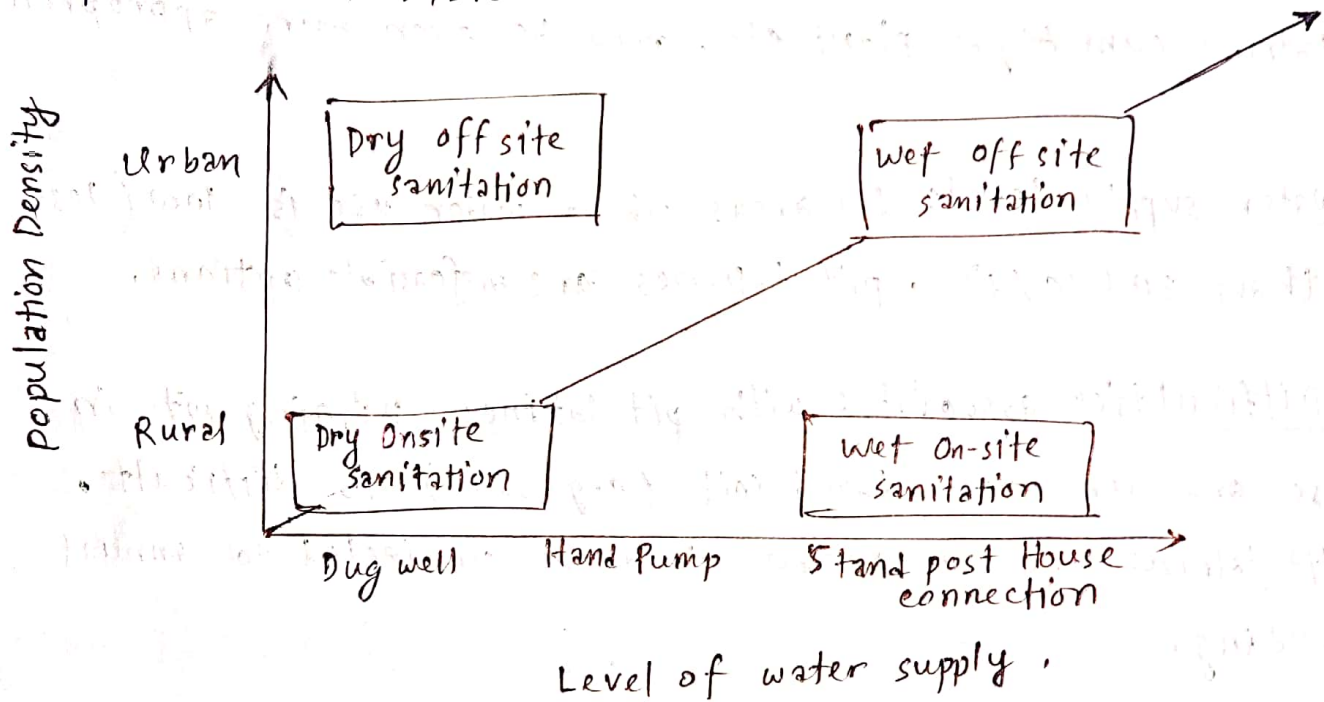 Population Density
Urban
Dry off site
sanitation
Wet off site
sanitation
Rural
Dry Onsite
sanitation
Wet On-site
sanitation
Dug well
Hand Pump
Stand post House
connection
Level of water supply.